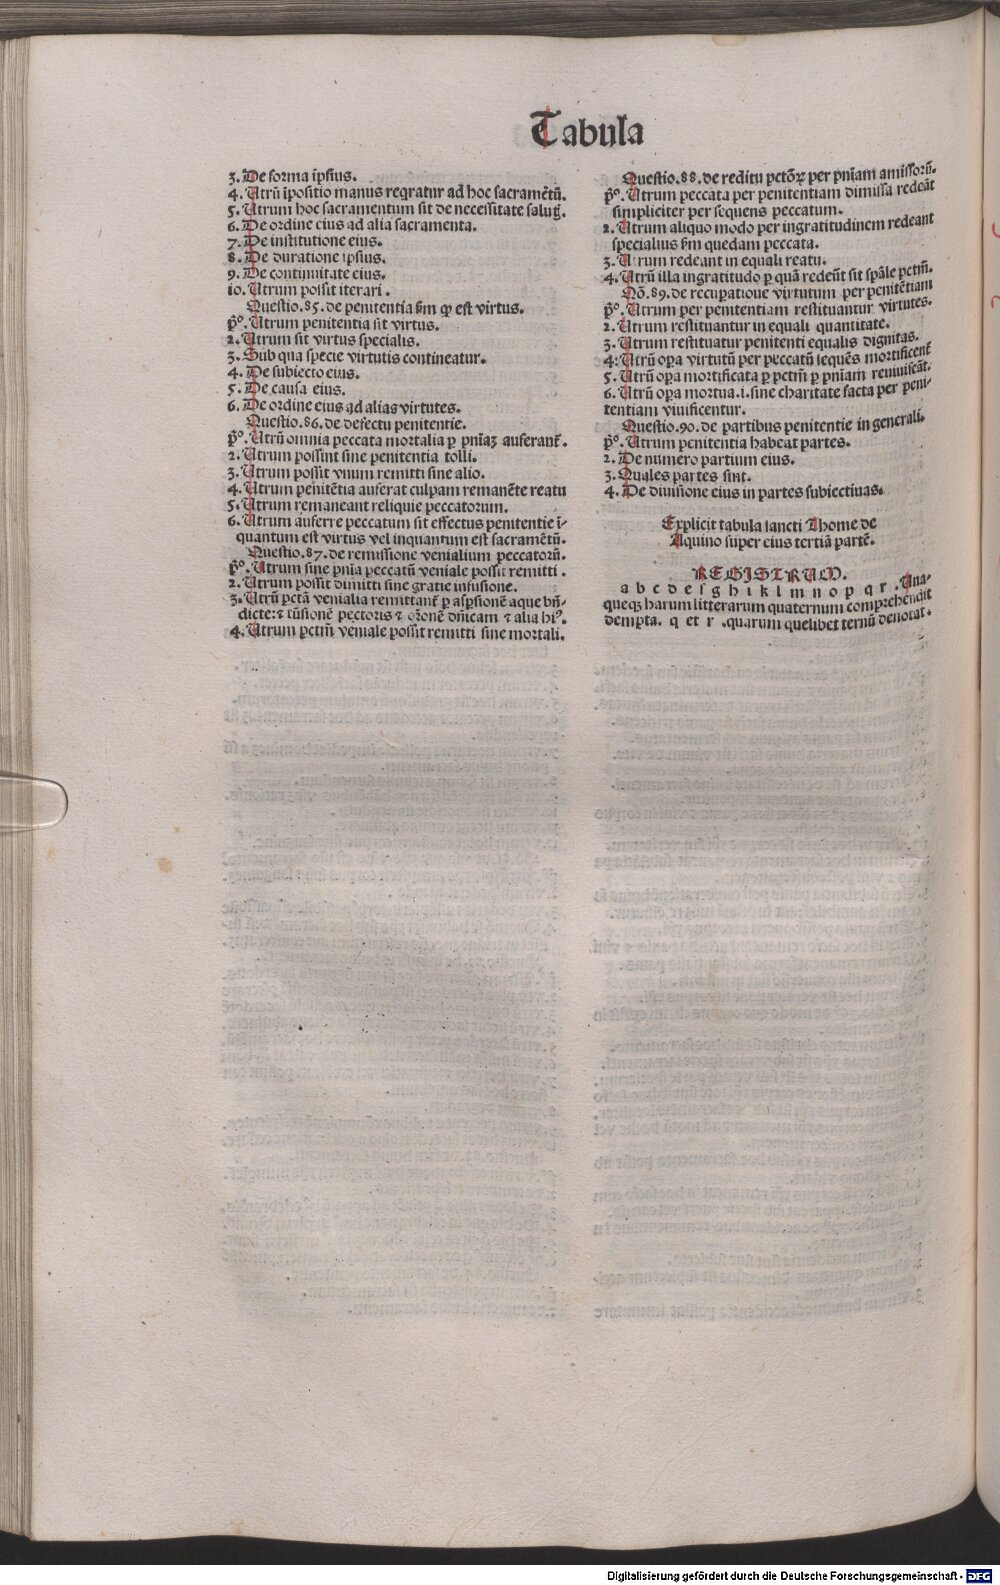 Tabula
3. De forma ip̄sius.
4. Utrū īpositio manus reqratur ad hoc sacramētū.
5. Utrum hoc sacramentum sit de necessitate salut̄.
6. De ordine eius ad alia sacramenta.
7. De institutione eius.
8. De duratione ipsius.
9. De continuitate eius.
10. Utrum possit iterari.
Questio.85. de penitentia ſm qꝫ est virtus.
p̄º. Utrum penitentia sit virtus.
2. Utrum sit virtus specialis.
3. Sub qua specie virtutis contineatur.
4. De subiecto eius.
5. De causa eius.
6. De ordine eius ad alias virtutes.
Questio.86. de defectu penitentie.
p̄º. Utrū omnia peccata mortalia ꝑ pn̄iaꝫ auferant̄.
2. Utrum possint sine penitentia tolli.
3. Utrum possit vnum remitti sine alio.
4. Utrum penitētia auferat culpam remanēte reatu
5. Utrum remaneant reliquie peccatorum.
6. Utrum auferre peccatum sit effectus penitentie ī-
quantum est virtus vel inquantum est sacramētū.
Questio.87. de remissione venialium peccatorū.
p̄º. Utrum sine pn̄ia peccatū veniale possit remitti.
2. Utrum possit dimitti sine gratie infusione.
3. Utrū pctā venialia remittant̄ ꝑ aspsionē aque bn̄-
dicte: ⁊ tūsionē pectoris ⁊ orōnē dn̄icam ⁊ alia hiº.
4. Utrum pctm̄ veniale possit remitti sine mortali.
Questio.88. de reditu pctōꝝ per pn̄iam amissorū.
p̄º. Utrum peccata per penitentiam dimissa redeāt
simpliciter per sequens peccatum.
2. Utrum aliquo modo per ingratitudinem redeant
specialius ſm quedam peccata.
3. Utrum redeant in equali reatu.
4. Utrū illa ingratitudo ꝑ quā redeūt sit spāle pctm̄.
Qō.89. de recupatione virtutum per penitētiam
p̄º. Utrum per penitentiam restituantur virtutes.
2. Utrum restituantur in equali quantitate.
3. Utrum restituatur penitenti equalis dignitas.
4. Utrū opa virtutū per peccatū sequēs mortificent̄
5. Utrū opa mortificata ꝑ pctm̄ ꝑ pn̄iam reuiuiscāt.
6. Utrū opa mortua.i.sine charitate facta per peni-
tentiam viuificentur.
Questio.90. de partibus penitentie in generali.
p̄º. Utrum penitentia habeat partes.
2. De numero partium eius.
3. Quales partes sint.
4. De diuisione eius in partes subiectiuas.
Explicit tabula sancti Thome de
Aquino super eius tertiā partē.
REGISTRUM.
a b c d e f g h i k l m n o p q r. Una-
queqꝫ harum litterarum quaternum comprehendit
dempta. q et r .quarum quelibet ternū denotat.
Digitalisierung gefördert durch die Deutsche Forschungsgemeinschaft - DFG